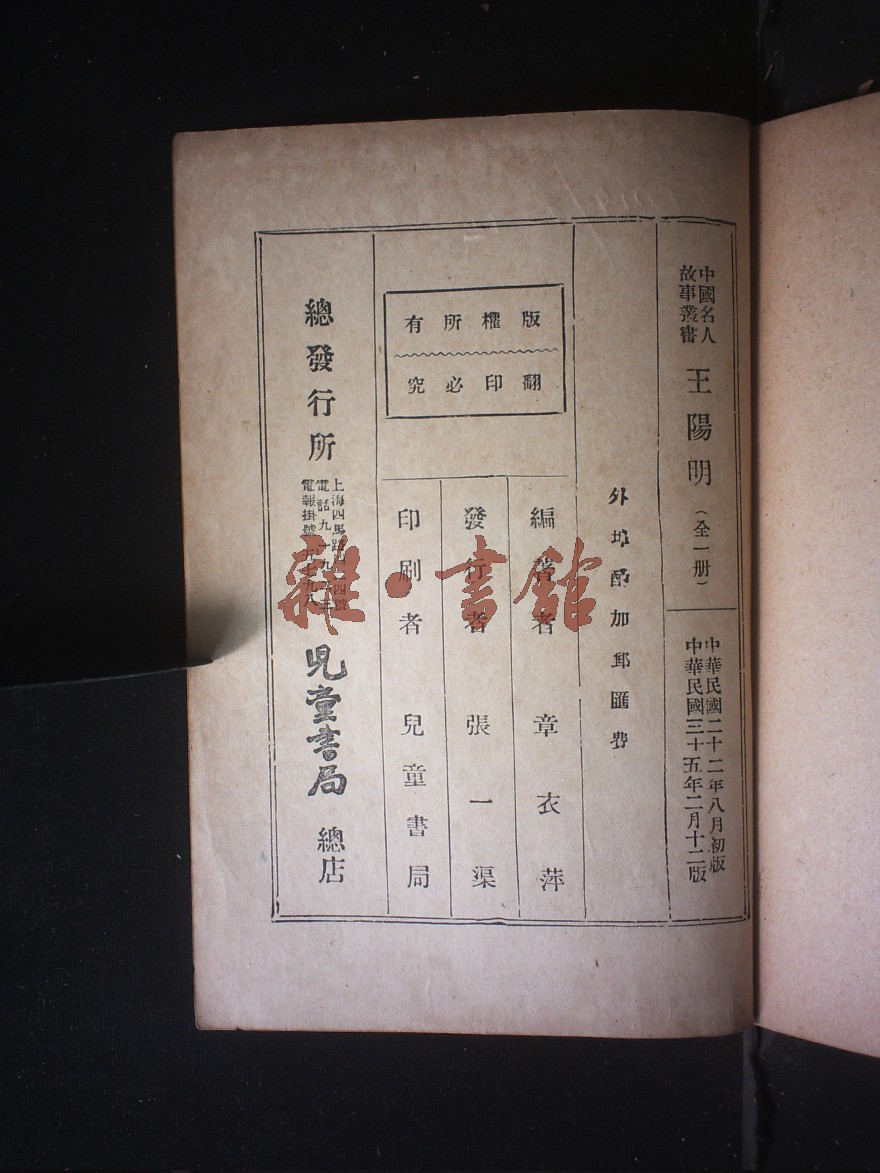 中國名人
故事叢書
王陽明
（全一册）
中華民國二十二年八月初版
中華民國三十五年二月十二版
外埠酌加郵匯費
版權所有
翻印必究
編著者 章衣萍
發行者 張一渠
印刷者 兒童書局
總發行所
上海四馬路
電話九一九
電報掛號
兒童書局
總店
雜·書館